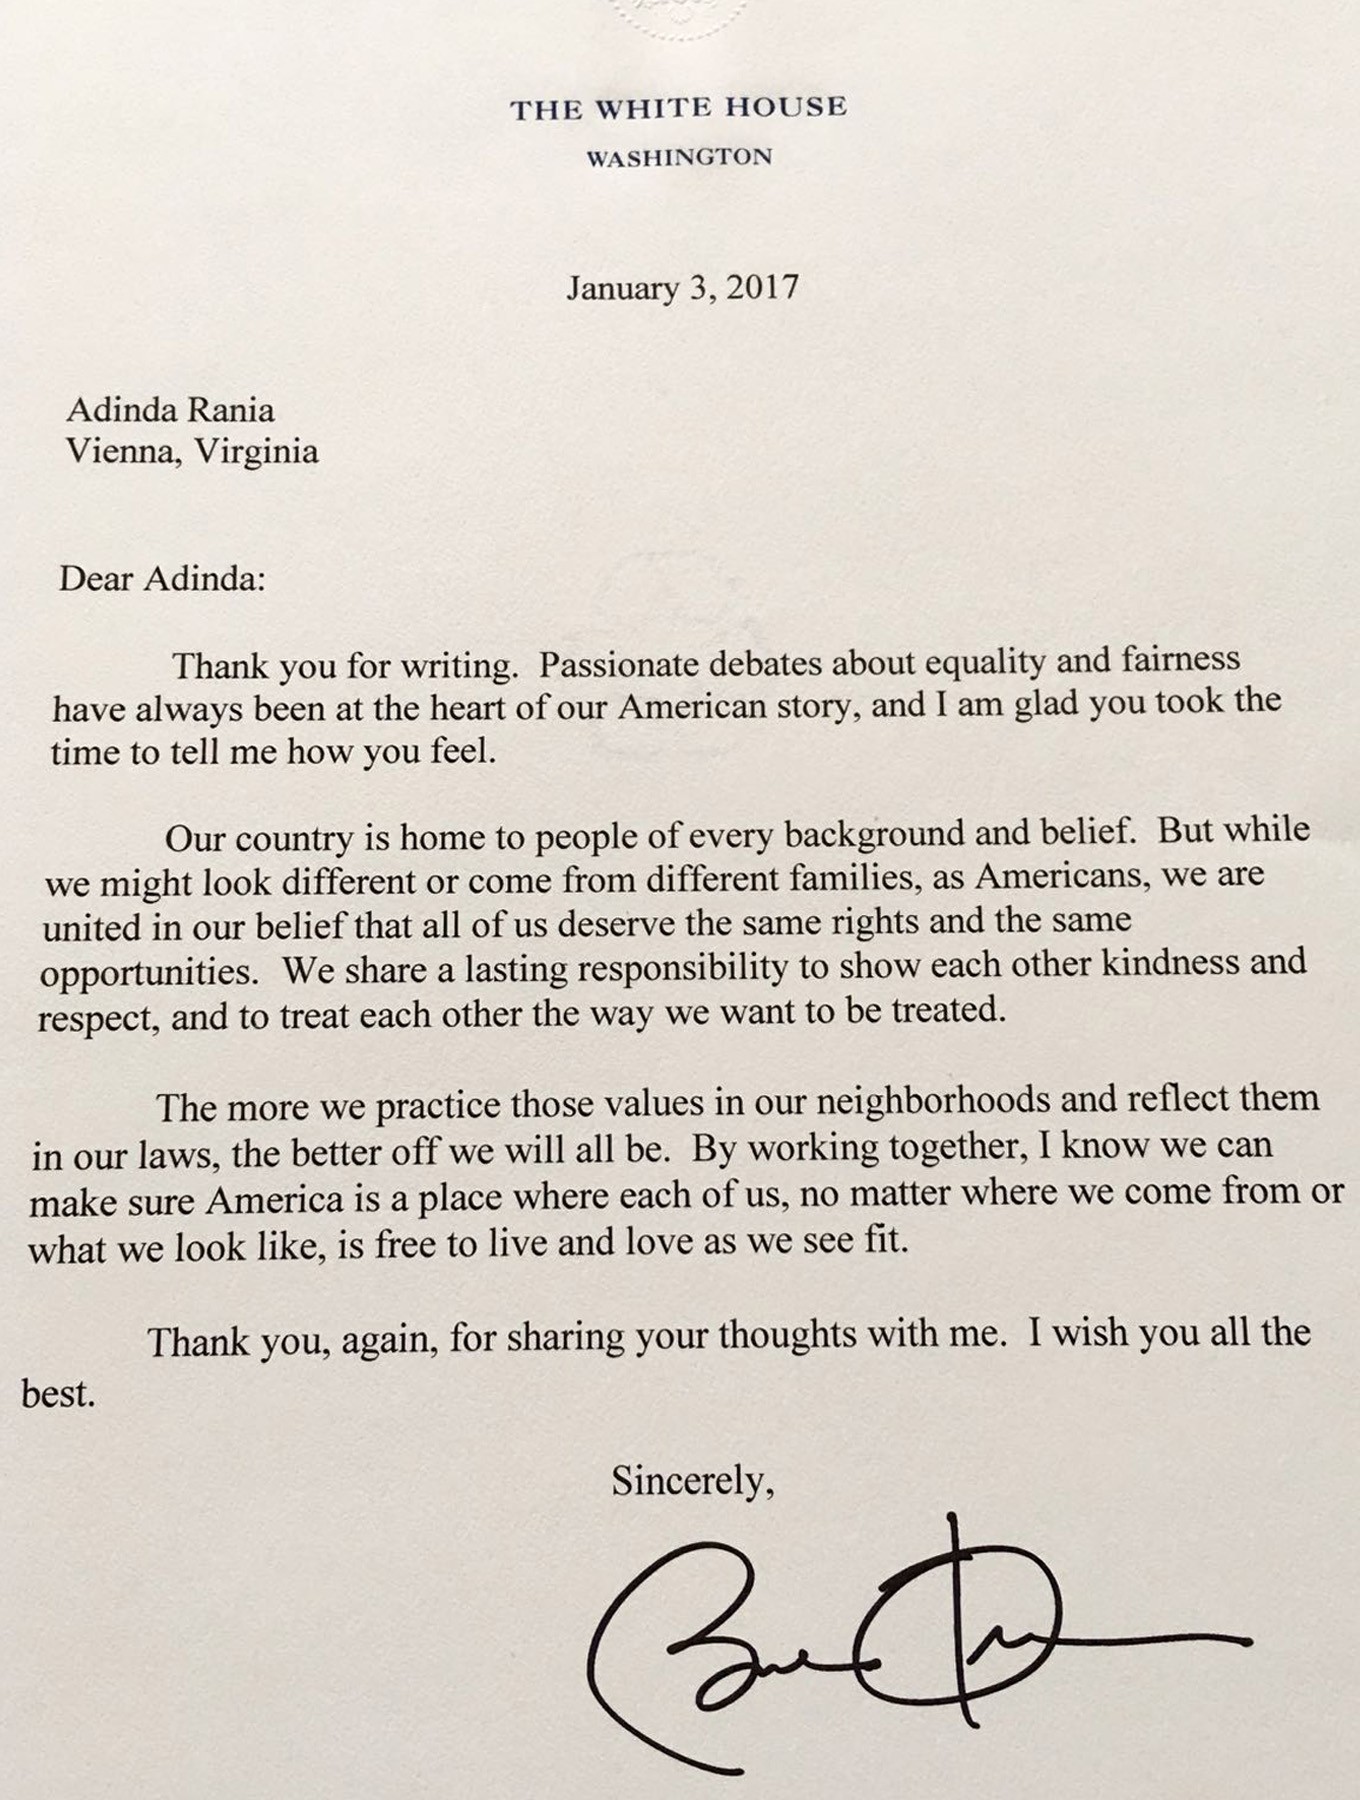 THE WHITE HOUSE
WASHINGTON
January 3, 2017
Adinda Rania
Vienna, Virginia
Dear Adinda:
Thank you for writing.  Passionate debates about equality and fairness
have always been at the heart of our American story, and I am glad you took the
time to tell me how you feel.
Our country is home to people of every background and belief.  But while
we might look different or come from different families, as Americans, we are
united in our belief that all of us deserve the same rights and the same
opportunities.  We share a lasting responsibility to show each other kindness and
respect, and to treat each other the way we want to be treated.
The more we practice those values in our neighborhoods and reflect them
in our laws, the better off we will all be.  By working together, I know we can
make sure America is a place where each of us, no matter where we come from or
what we look like, is free to live and love as we see fit.
Thank you, again, for sharing your thoughts with me.  I wish you all the
best.
Sincerely,